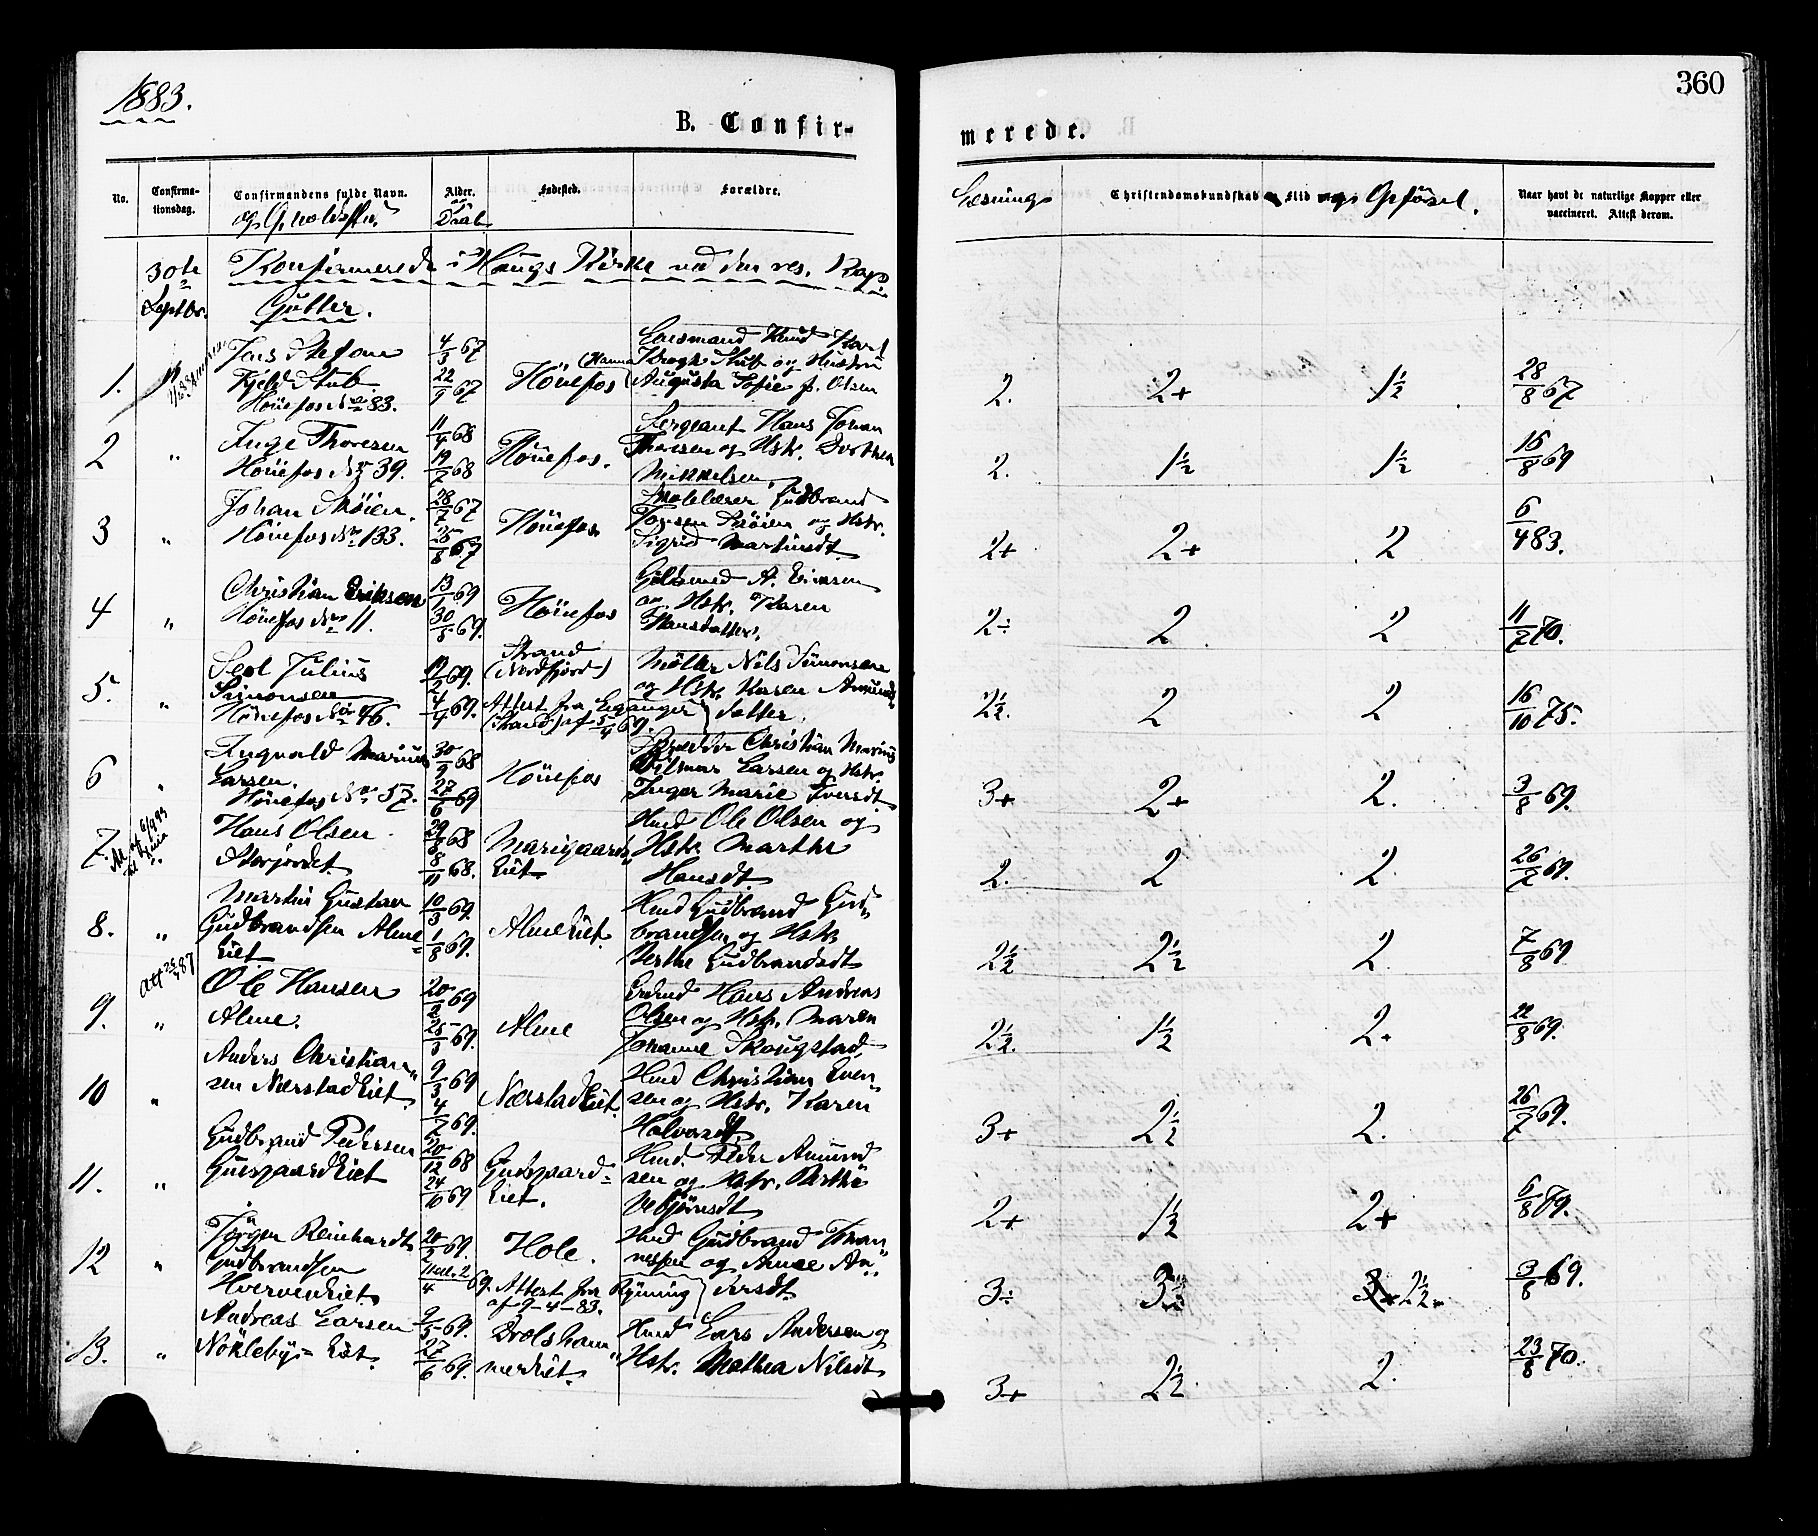 1883.
360
B. Confir-
merede.
No.
Confirma-
tionsdag.
Confirmandens fulde Navn.
og
Alder.
og
Daab
Fødested.
Forældre.
Læsning
Christendomskundskab
Flid og Opførsel.
Naar havt de naturlige Kopper eller
vaccineret. Attest derom.
30te
Septbr.
Konfirmerede i Haugs Kirke ved den res. Kap.
Gutter.
1.
Jens
Fjeld Stub
Hönefos No 83.
4/3 67
22/9 67
Hönefos
Lensmand Knud
Stub og Hustru
(Hanna
Augusta Sofie f. Olsen
2.
2+
1½
28/8 67
2
"
Inge Thoresen
Hönefos No 39.
11/4 68
19/7 68
Hönefos.
Sergeant Hans Johan
Thoresen og Hstr. Dorthea
Mikkelsen
2.
1½
1½
16/8 69
3
"
Johan Sköien.
Hönefos No 133.
28/7 67
25/8 67
Hönefos
Gudbrand
Sköien og Hstr.
Sigrid Martinsdt.
2+
2+
2
6/4 83.
4
"
Christian Eriksen
Hönefos No 11.
13/ 69
30/5 69.
Hönefos
A. Eriksen
og Hstr. Karen
Hansdatter.
2÷
2
2
11/7 70.
5.
"
Julius
Simonsen
Hönefos No 46.
/2 69.
4/4 69.
Strand
(Nordfjord)
Attest fra
(Strand) af 5/4 69.
Möller Nils Simonsen
og Hstr. Karen Amunds
datter.
2½.
2
2
16/10 75.
6
"
Ingvald Marius
Larsen.
Hönefos No 57.
30/9 68
27/6 69
Hönefos
Christian Marius
Larsen og Hstr.
Inger Marie Iversdt.
3+
2+
2.
3/8 69.
7.
"
Hans Olsen
29/ 68
8/11 68.
Marigaards
Eiet
Hmd Ole Olsen og
Hstr Marthe
Hansdt.
2.
2
2.
26/7 69.
8.
"
Martin Gustav
Gudbrandsen Alme=
Eiet
10/3 69.
1/8 69.
AlmeEiet.
Hmd Gudbrand Gud=
brandsen og Hstr.
Berthe Gudbrandsdt
2½
2½
2.
7/8 69
Att 25/ 87
9.
"
Ole Hansen
Alme.
20/2 69
25/3 69.
Alme
Hans Andreas
Olsen og Hstr. Maren
Johanne Skougstad.
2½.
1½
2.
22/8 69.
10
"
Anders Christian=
sen NærstadEiet.
9/3 69
4/7 69.
NærstadEiet.
Hmd Christian Even=
sen og Hstr. Karen
Halvorsdt.
3+
2½
2.
26/7 69.
11.
"
Gudbrand Pedersen
GusgaardEiet
20/12 68
24/10 69
Gusgaard=
Eiet.
Hmd. Peder Amund
sen og Hstr. Berthe
2+
1½
2+
6/8 79.
12
"
Jörgen Reinhardt
Gudbrandsen
HvervenEiet.
20/2 69.
Hole.
Attest fra
af 9-4-83.
Hmd Gudbrand Johan
nessen og Anne An=
dersdt.
3÷
2½
3/8 69.
13.
"
Andreas Larsen
Nökleby= Eiet.
9/5 69.
27/6 69.
Drolsham=
merEiet.
Hmd Lars Andersen og
Hstr. Mathea Nilsdt
3+
2½
2.
23/8 70.